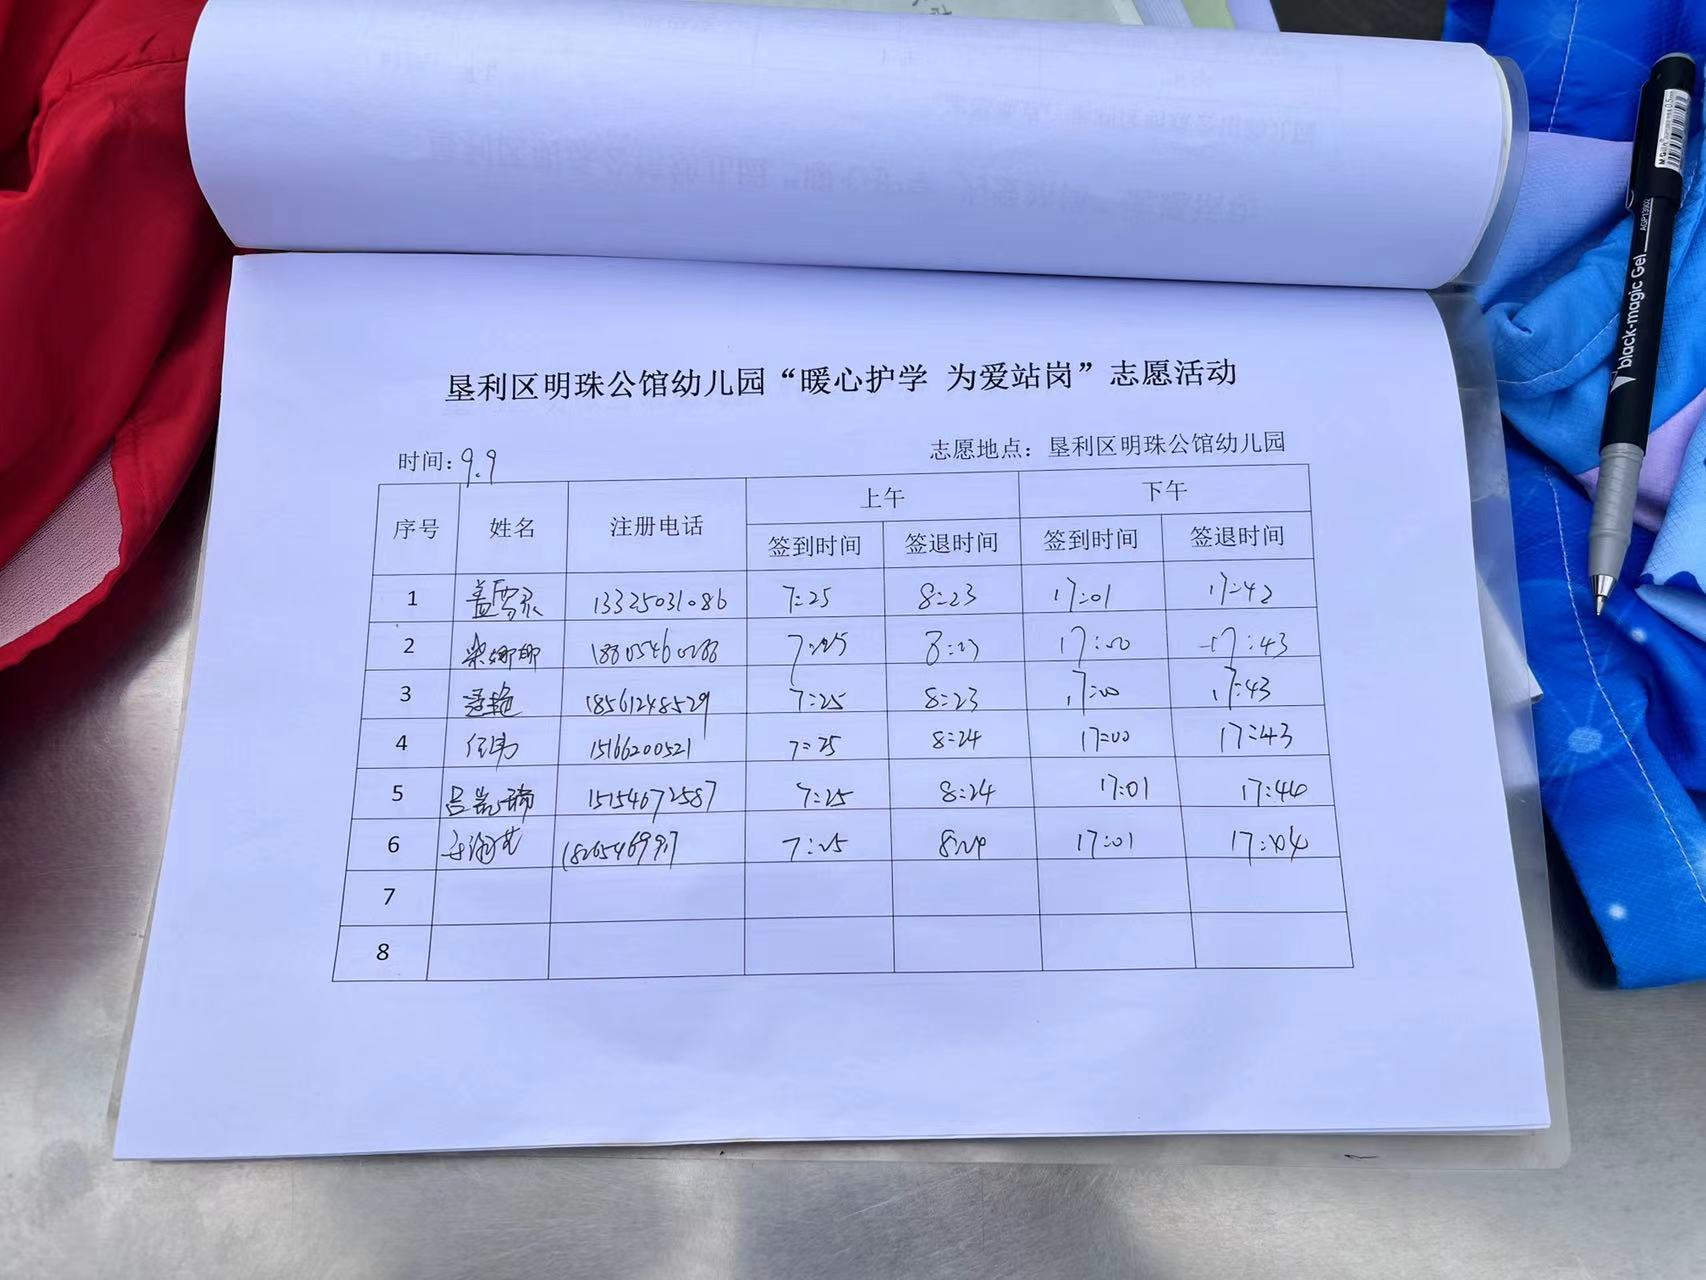 垦利区明珠公馆幼儿园“暖心护学 为爱站岗”志愿活动
时间:9.9 志愿地点:垦利区明珠公馆幼儿园
序号 姓名 注册电话 上午 下午
签到时间 签退时间 签到时间 签退时间
1 13325031086 7:25 8:23 17:01 17:42
2 7:25 8:23 17:00 17:43
3 18561248529 7:25 8:23 17:00 17:43
4 任伟 15166200521 7:25 8:24 17:00 17:43
5 15154672587 7:25 8:24 17:01 17:44
6 7:25 8:24 17:01
7
8
M&G
AGP13902
black-magic Gel